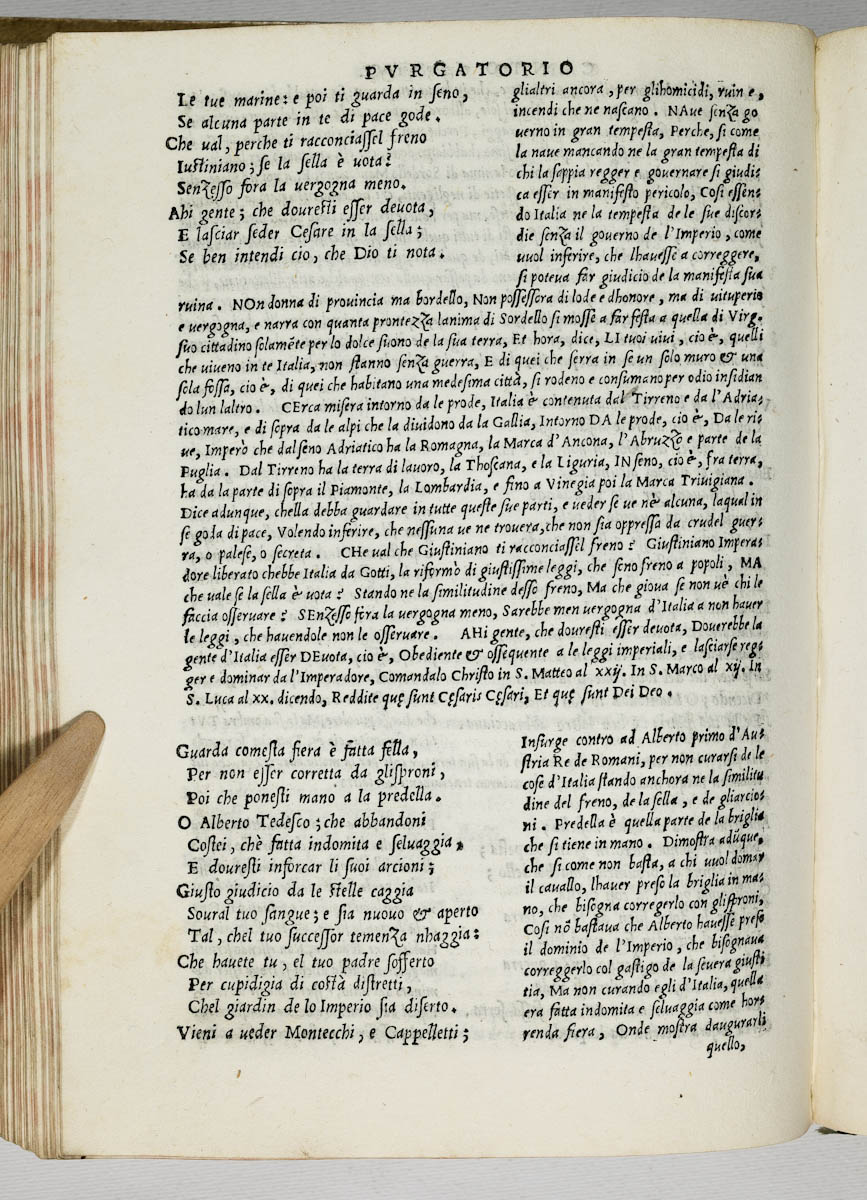 PVRGATORIO
Le tue marine: e poi ti guarda in seno,
Se alcuna parte in te di pace gode.
Che ual, perche ti racconciassel freno
Iustiniano; se la sella è uota?
Senzesso fora la uergogna meno.
Ahi gente; che douresti esser deuota,
E lasciar seder Cesare in la sella;
Se ben intendi cio, che Dio ti nota.
glialtri ancora, per glihomicidi, ruin e,
incendi che ne nascano. NAue senza go
uerno in gran tempesta, Perche, si come
la naue mancando ne la gran tempesta di
chi la sappia regger e gouernare si giudi-
ca esser in manifesto pericolo, Cosi essen-
do Italia ne la tempesta de le sue discor-
die senza il gouerno de l'Imperio, come
uuol inferire, che lhauesse a correggere,
si poteua far giudicio de la manifesta sua
ruina. NOn donna di prouincia ma bordello, Non possessora di lode e dhonore, ma di uituperio
e uergogna, e narra con quanta prontezza lanima di Sordello si mosse a far festa a quella di Virg.
suo cittadino solamẽte per lo dolce suono de la sua terra, Et hora, dice, LI tuoi uiui, cio è, quelli
che uiueno in te Italia, non stanno senza guerra, E di quei che serra in se un solo muro & una
sola fossa, cio è, di quei che habitano una medesima città, si rodeno e consumano per odio insidian
do lun laltro. CErca misera intorno da le prode, Italia è contenuta dal Tirreno e da l'Adria-
tico mare, e di sopra da le alpi che la diuidono da la Gallia, Intorno DA le prode, cio è, Da le ri-
ue, Imperò che dal seno Adriatico ha la Romagna, la Marca d'Ancona, l'Abruzzo e parte de la
Puglia. Dal Tirreno ha la terra di lauoro, la Thoscana, e la Liguria, IN seno, cio è, fra terra,
ha da la parte di sopra il Piamonte, la Lombardia, e fino a Vinegia poi la Marca Triuigiana.
Dice adunque, chella debba guardare in tutte queste sue parti, e ueder se ue nè alcuna, laqual in
se goda di pace, Volendo inferire, che nessuna ue ne trouera, che non sia oppressa da crudel guer-
ra, o palese, o secreta. CHe ual che Giustiniano ti racconciassel freno? Giustiniano Impera-
dore liberato chebbe Italia da Gotti, la riformò di giustissime leggi, che seno freno a popoli, MA
che uale se la sella è uota? Stando ne la similitudine desso freno, Ma che gioua se non uè chi le
faccia osseruare? SEnzesso fora la uergogna meno, Sarebbe men uergogna d'Italia a non hauer
le leggi, che hauendole non le osseruare. AHi gente, che douresti esser deuota, Douerebbe la
gente d'Italia esser DEuota, cio è, Obediente & ossequente a le leggi imperiali, e lasciarse reg-
ger e dominar da l'Imperadore, Comandalo Christo in S. Matteo al xxij. In S. Marco al xij. In
S. Luca al xx. dicendo, Reddite quę sunt Cęsaris Cęsari, Et quę sunt Dei Deo.
Guarda comesta fiera è fatta fella,
Per non esser corretta da glisproni,
Poi che ponesti mano a la predella.
O Alberto Tedesco; che abbandoni
Costei, chè fatta indomita e seluaggia,
E douresti inforcar li suoi arcioni;
Giusto giudicio da le stelle caggia
Soural tuo sangue; e sia nuouo & aperto
Tal, chel tuo successor temenza nhaggia:
Che hauete tu, el tuo padre sofferto
Per cupidigia di costà distretti,
Chel giardin de lo Imperio sia diserto.
Vieni a ueder Montecchi, e Cappelletti;
Insurge contro ad Alberto primo d'Au-
stria Re de Romani, per non curarsi de le
cose d'Italia stando anchora ne la similitu
dine del freno, de la sella, e de gliarcio-
ni. Predella è quella parte de la briglia
che si tiene in mano. Dimostra adũque,
che si come non basta, a chi uuol domar
il cauallo, lhauer preso la briglia in ma-
no, che bisogna corregerlo con glisproni,
Cosi nõ bastaua che Alberto hauesse preso
il dominio de l'Imperio, che bisognaua
correggerlo col gastigo de la seuera giusti
tia, Ma non curando egli d'Italia, quella
era fatta indomita e seluaggia come hor-
renda fiera, Onde mostra daugurarli
quello,